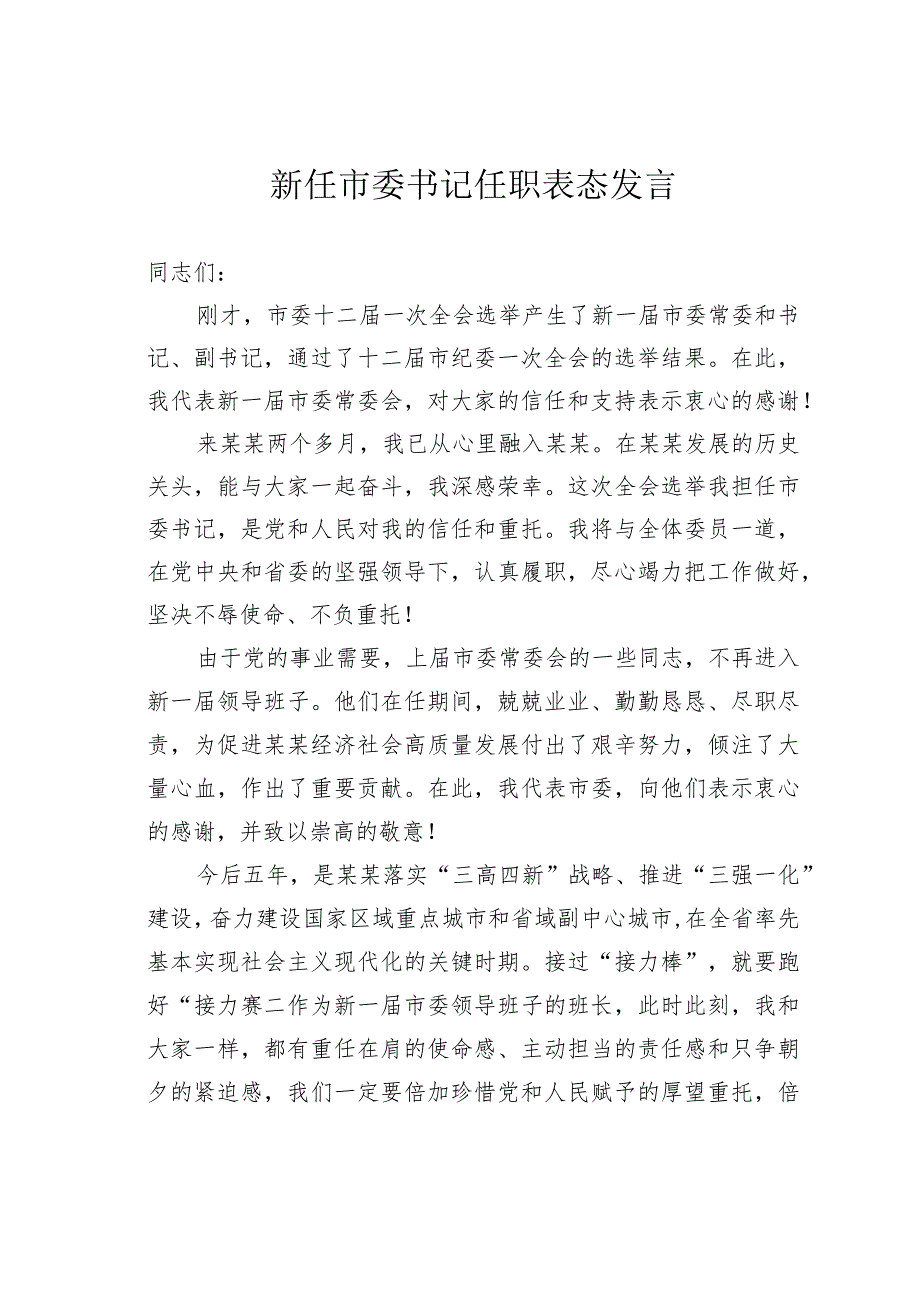 新任市委书记任职表态发言
同志们：
刚才，市委十二届一次全会选举产生了新一届市委常委和书
记、副书记，通过了十二届市纪委一次全会的选举结果。在此，
我代表新一届市委常委会，对大家的信任和支持表示衷心的感谢！
来某某两个多月，我已从心里融入某某。在某某发展的历史
关头，能与大家一起奋斗，我深感荣幸。这次全会选举我担任市
委书记，是党和人民对我的信任和重托。我将与全体委员一道，
在党中央和省委的坚强领导下，认真履职，尽心竭力把工作做好，
坚决不辱使命、不负重托！
由于党的事业需要，上届市委常委会的一些同志，不再进入
新一届领导班子。他们在任期间，兢兢业业、勤勤恳恳、尽职尽
责，为促进某某经济社会高质量发展付出了艰辛努力，倾注了大
量心血，作出了重要贡献。在此，我代表市委，向他们表示衷心
的感谢，并致以崇高的敬意！
今后五年，是某某落实“三高四新”战略、推进“三强一化”
建设，奋力建设国家区域重点城市和省域副中心城市,在全省率先
基本实现社会主义现代化的关键时期。接过“接力棒”，就要跑
好“接力赛二作为新一届市委领导班子的班长，此时此刻，我和
大家一样，都有重任在肩的使命感、主动担当的责任感和只争朝
夕的紧迫感，我们一定要倍加珍惜党和人民赋予的厚望重托，倍